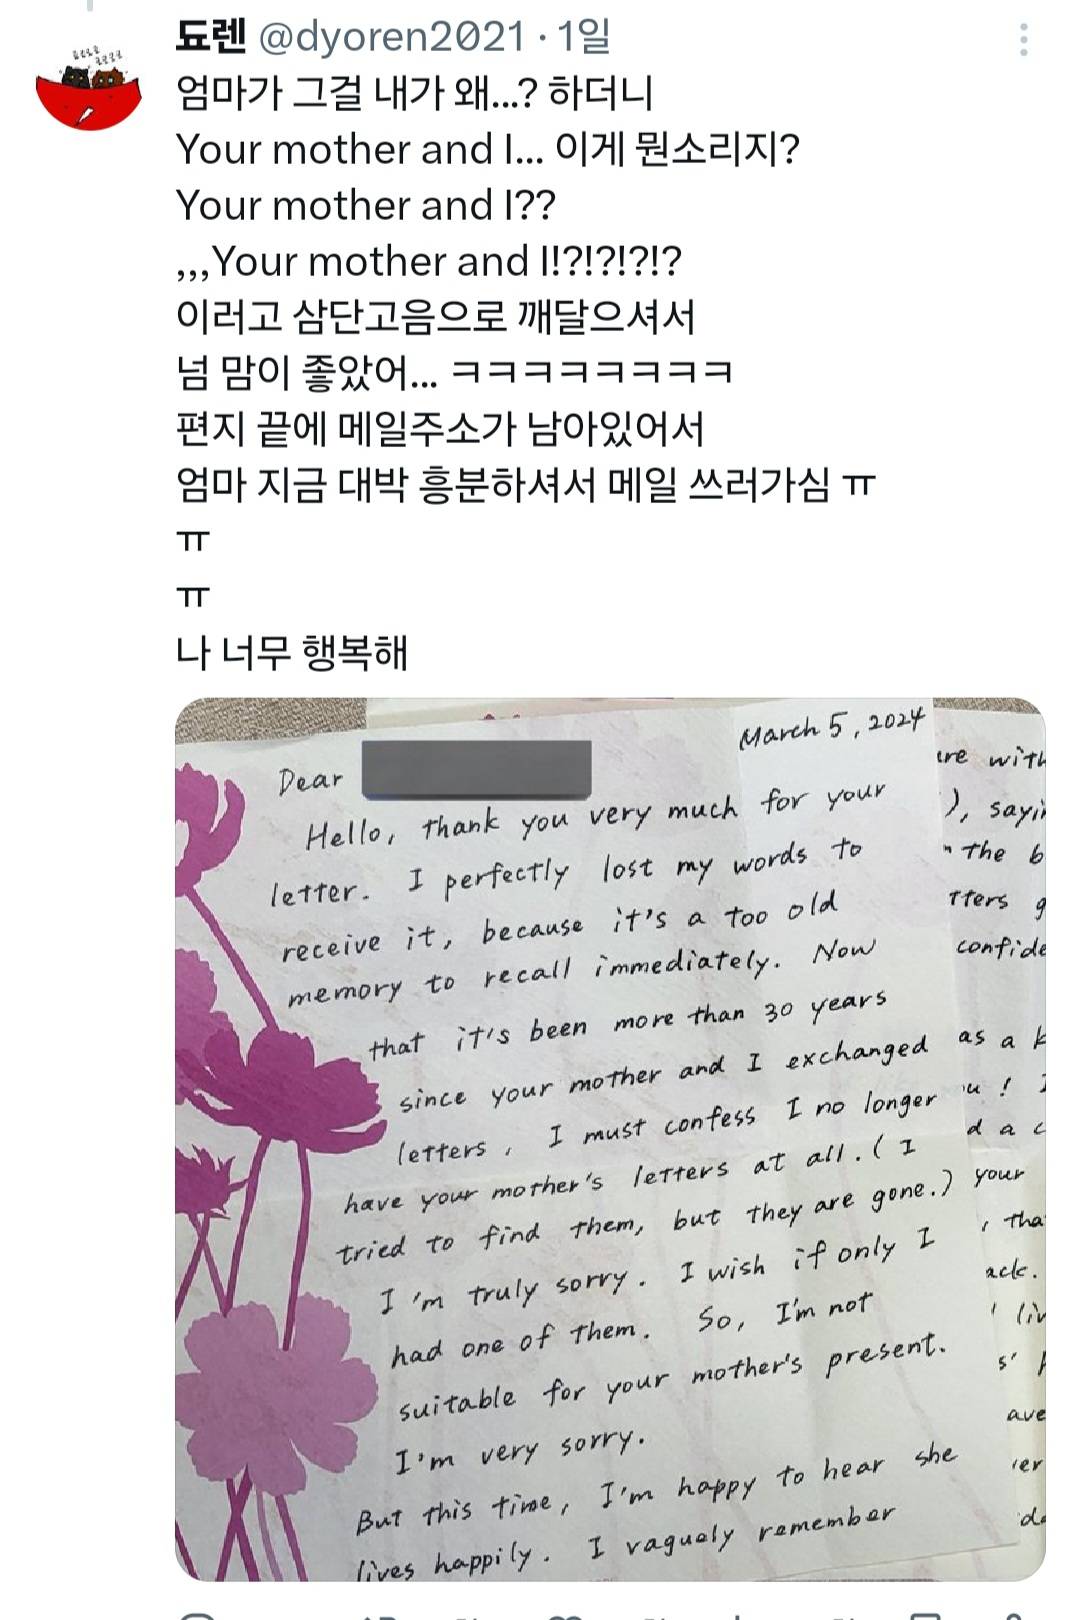 됴렌 @dyoren2021 · 1일
엄마가 그걸 내가 왜...? 하더니
Your mother and I... 이게 뭔소리지?
Your mother and I??
,,,Your mother and I!?!?!?!?
이러고 삼단고음으로 깨달으셔서
넘 맘이 좋았어... ㅋㅋㅋㅋㅋㅋㅋㅋ
편지 끝에 메일주소가 남아있어서
엄마 지금 대박 흥분하셔서 메일 쓰러가심 ㅠ
ㅠ
ㅠ
나 너무 행복해
March 5, 2024
Dear
Hello, thank you very much for your
letter. I perfectly lost my words to
receive it, because it's a too old
memory to recall immediately. Now
that it's been more than 30 years
since your mother and I exchanged
letters, I must confess I no longer
have your mother's letters at all. (I
tried to find them, but they are gone.)
I'm truly sorry. I wish if only I
had one of them. So, I'm not
suitable for your mother's present.
I'm very sorry.
But this time, I'm happy to hear she
lives happily. I vaguely remember
with
the
as a
your